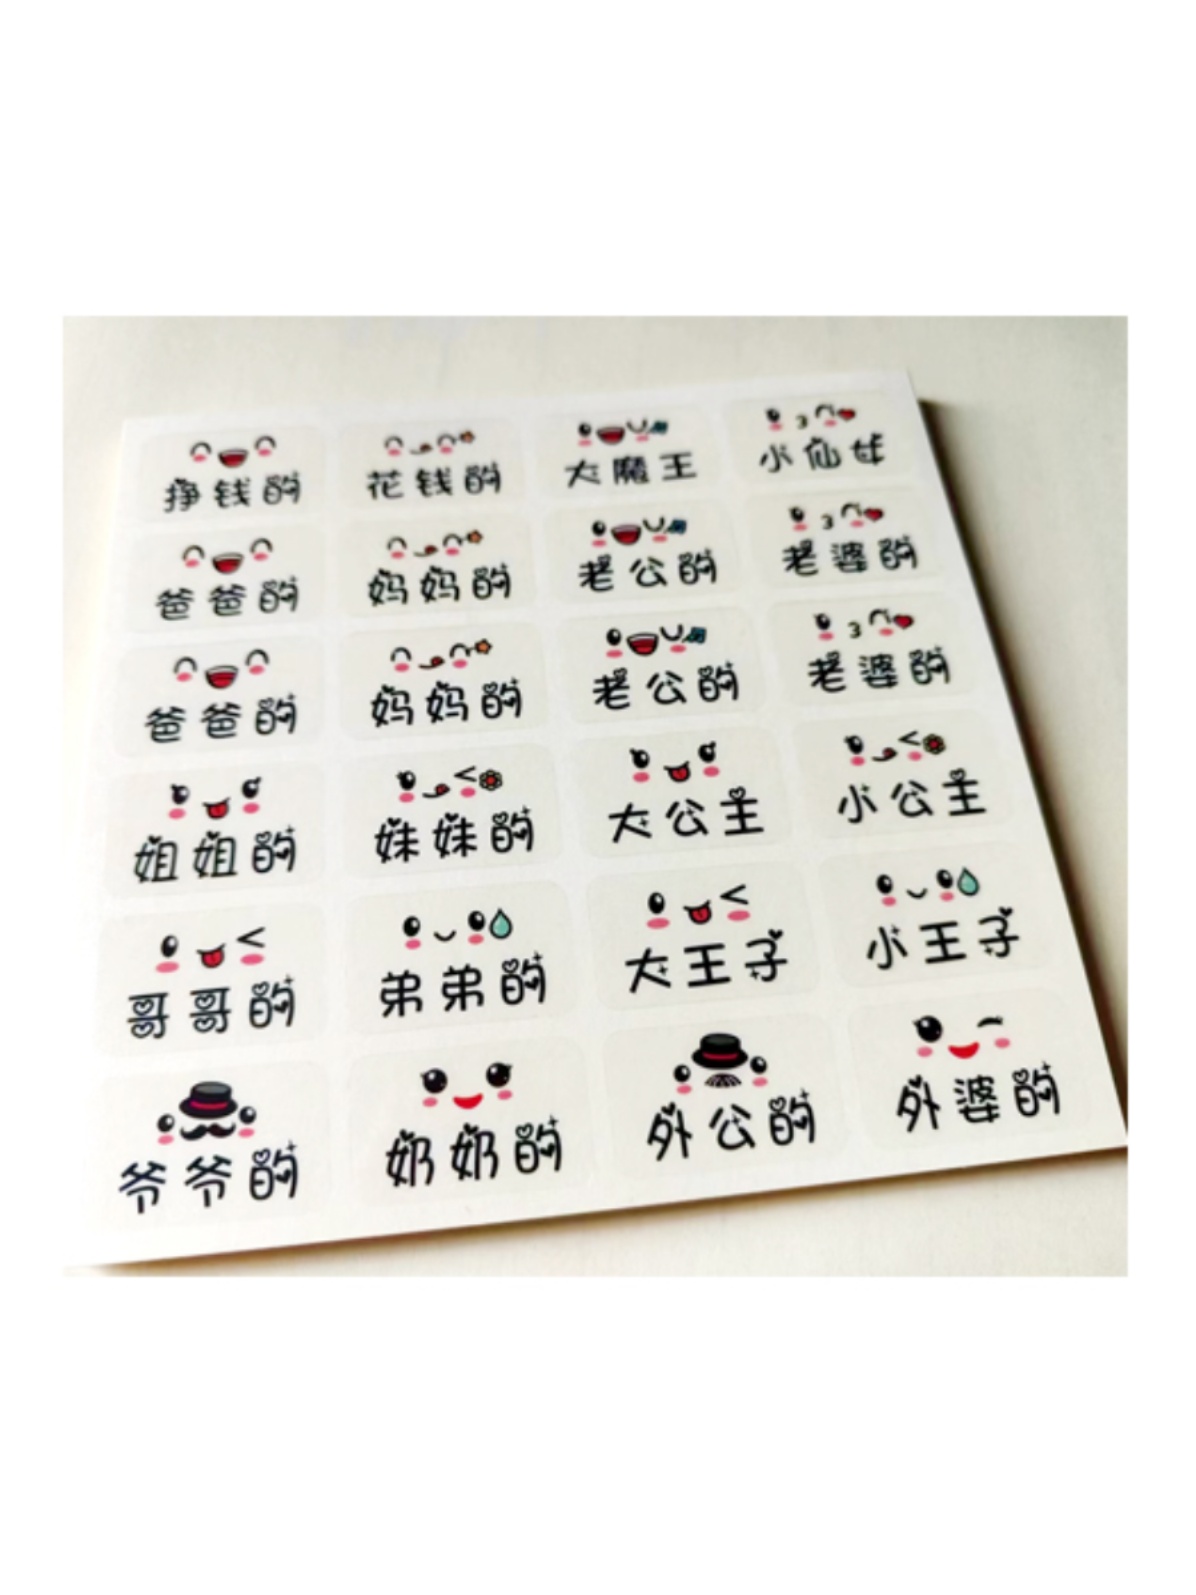 挣钱的 花钱的 大魔王 小仙女
爸爸的 妈妈的 老公的 老婆的
爸爸的 妈妈的 老公的 老婆的
姐姐的 妹妹的 大公主 小公主
哥哥的 弟弟的 大王子 小王子
爷爷的 奶奶的 外公的 外婆的